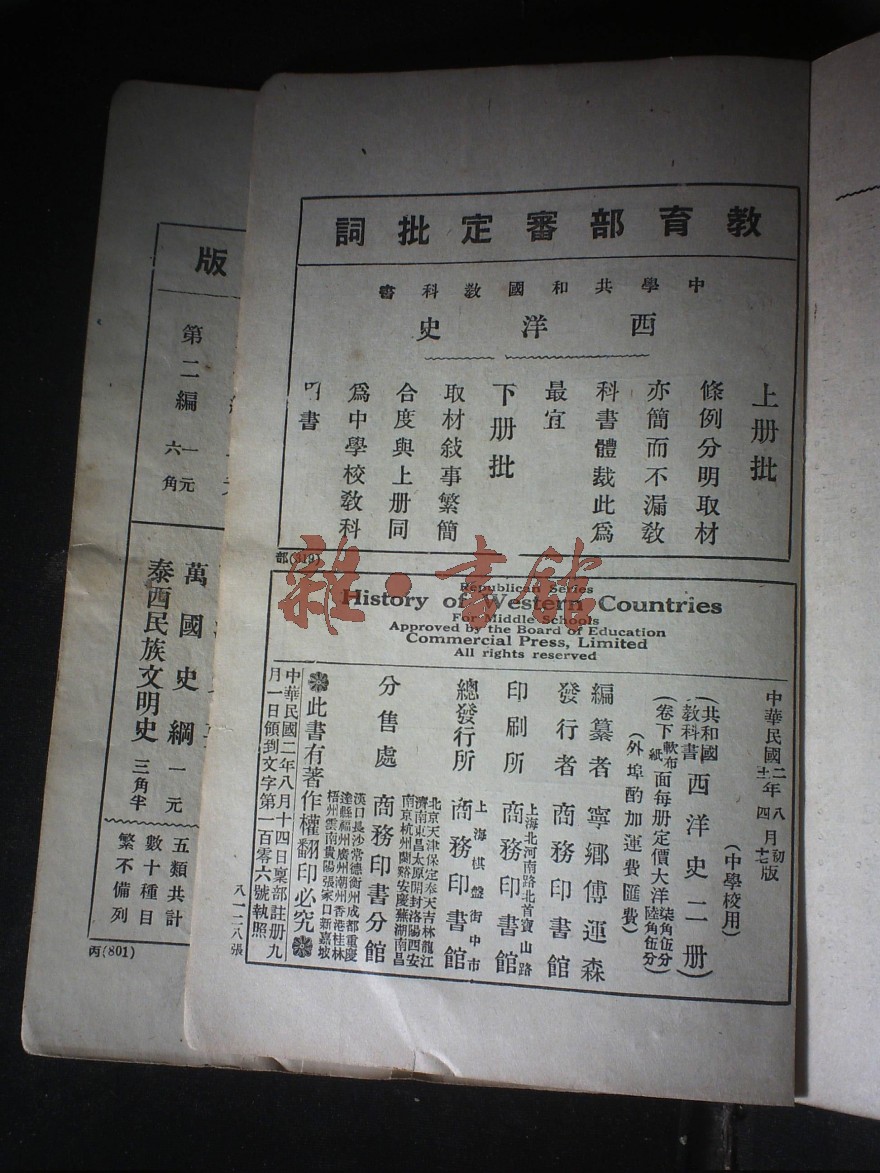 教育部審定批詞
中學共和國教科書
西洋史
上册批
條例分明取材
亦簡而不漏教
科書體裁此爲
最宜
下册批
取材敍事繁簡
合度與上册同
爲中學校敎科
明書
部(319)
Republican Series
History of Western Countries
For Middle Schools
Approved by the Board of Education
Commercial Press, Limited
All rights reserved
中華民國二年八月初版
十二年四月十七版
(中學校用)
(共和國教科書西洋史二册)
(卷下軟布紙面每册定價大洋柒角伍分陸角伍分)
(外埠酌加運費匯費)
編纂者 寧鄉傅運森
發行者 商務印書館
上海北河南路北首寶山路
印刷所 商務印書館
上海棋盤街中市
總發行所 商務印書館
北京天津保定奉天吉林龍江
濟南東昌太原開封洛陽西安
南京杭州蘭谿安慶蕪湖南昌
分售處 商務印書分館
漢口長沙常德衡州成都重慶
達縣福州廣州潮州香港桂林
梧州雲南貴陽張家口新嘉坡
此書有著作權翻印必究
中華民國二年八月十四日稟部註册九
月一日領到文字第一百零六號執照
八一二八張
版
第二編 一元六角
萬國史綱 一元
泰西民族文明史 三角半
五類共計
數十種目
繁不備列
丙(801)
雜·書館